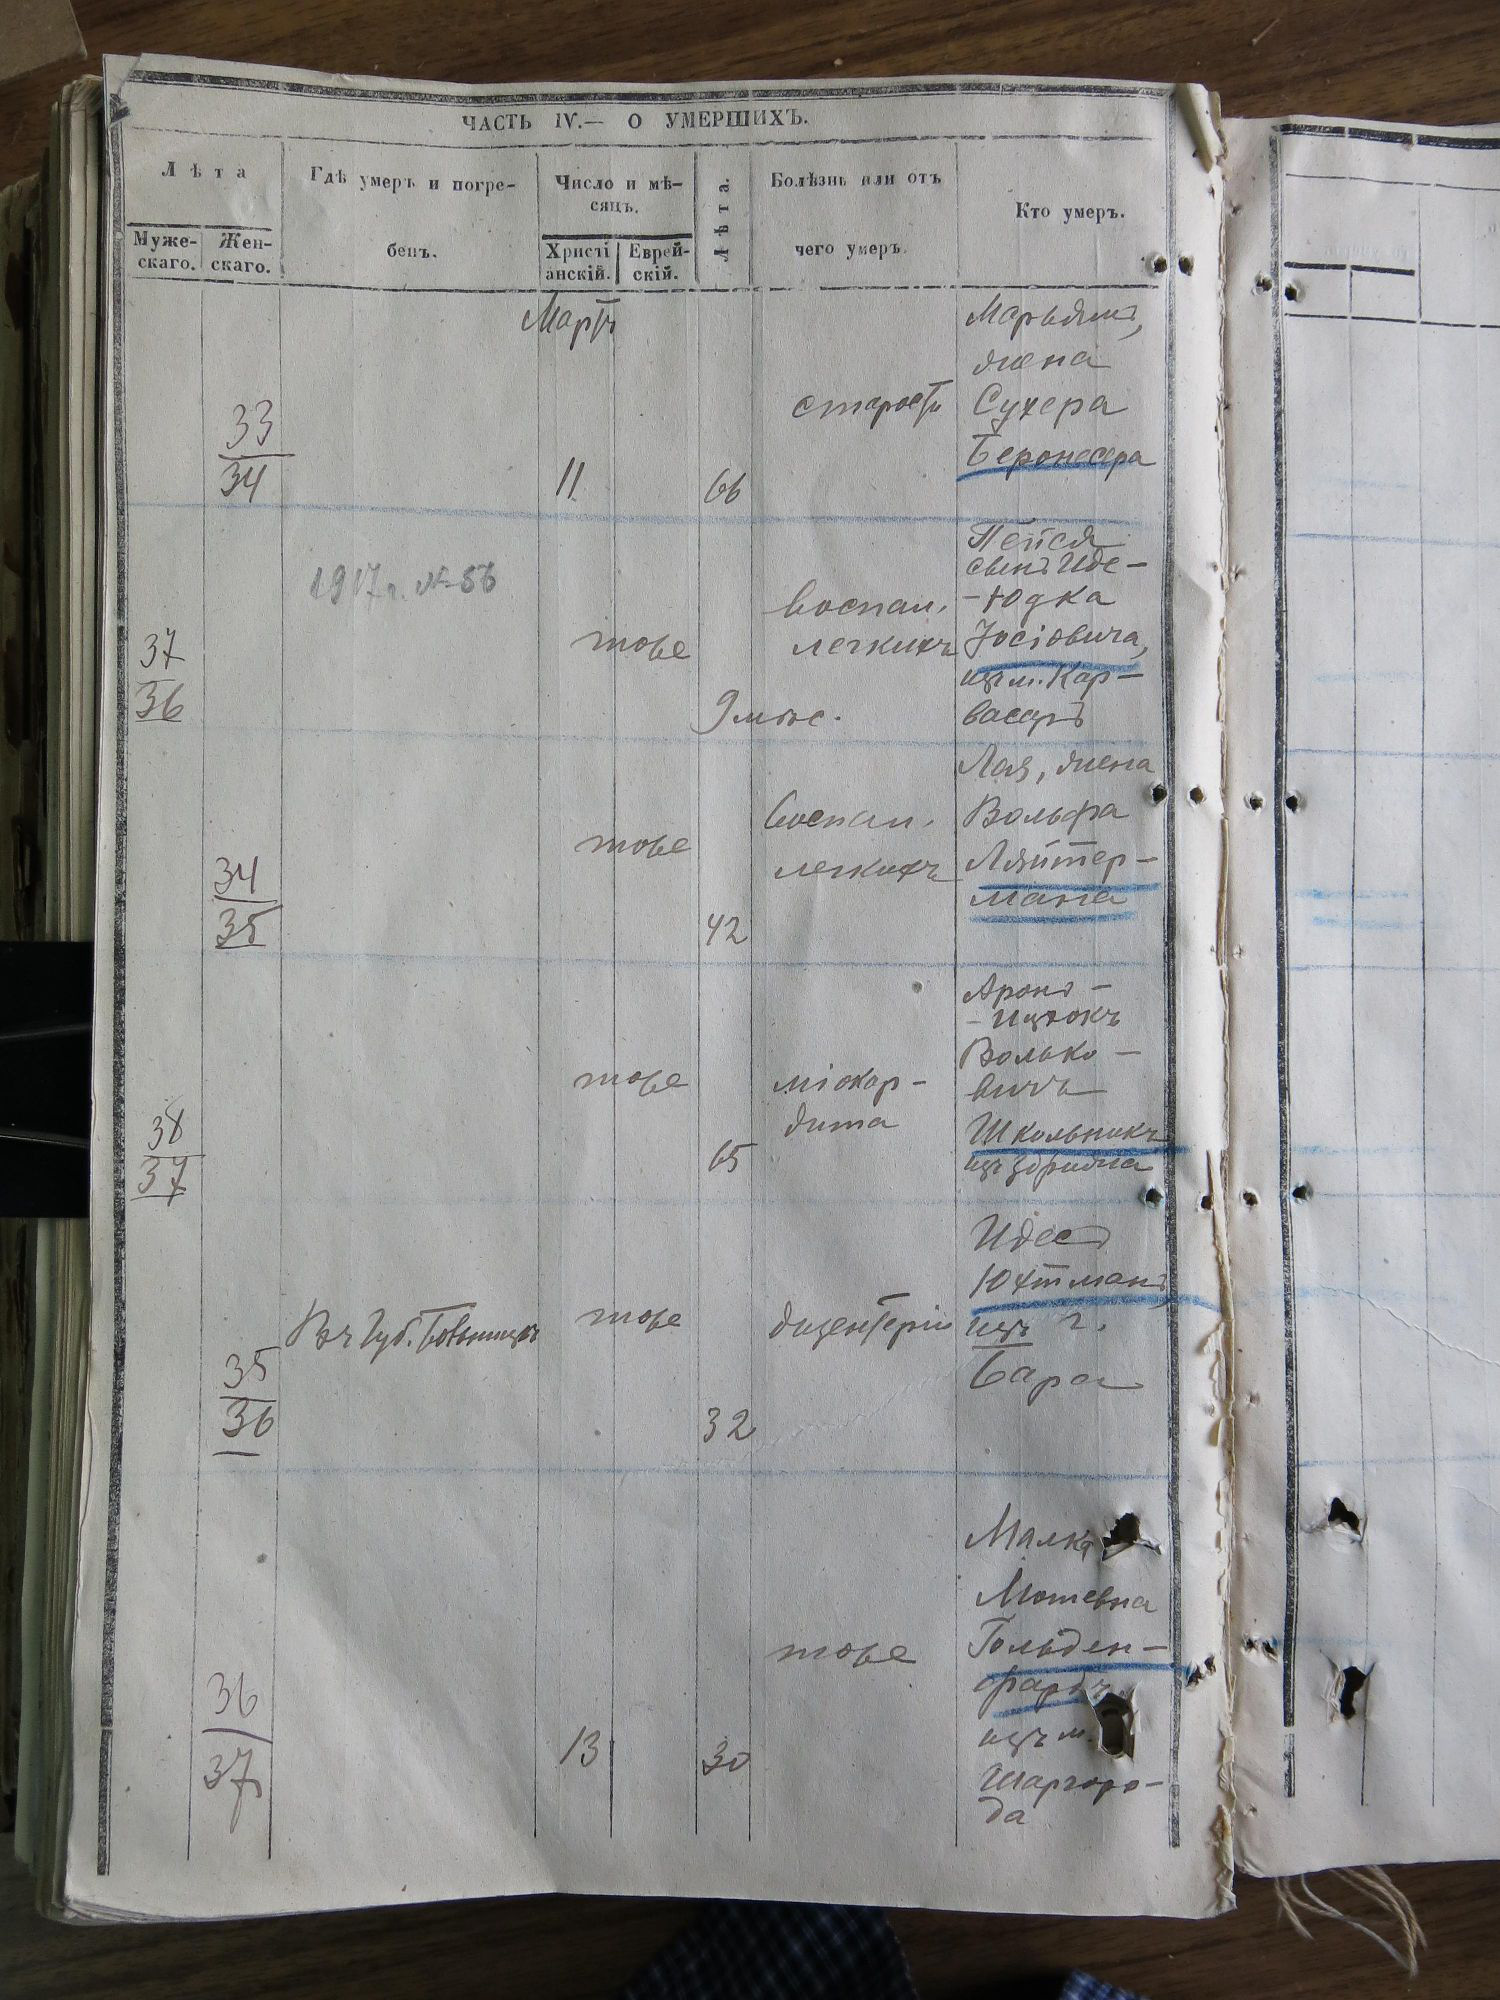 ЧАСТЬ IV.— О УМЕРШИХЪ.
Лѣта
Муже-
скаго.
Жен-
скаго.
Гдѣ умеръ и погре-
бенъ.
Число и мѣ-
сяцъ.
Христі
анскій.
Еврей-
скій.
Лѣта.
Болѣзнь или отъ
чего умеръ.
Кто умеръ.
Мартъ
33
34
11
66
старости
Марьямъ,
жена
Сухера
37
36
1917 г. №56
тоже
9 мѣс.
воспал.
легкихъ
Пейся
сынъ Иде-
-Юдка
Іосіовича,
изъ м. Кар-
васаръ
34
35
тоже
42
воспал.
легкихъ
Лея, жена
Вольфа
Ляйтер-
мана
38
37
тоже
65
міокар-
дита
Аронъ-
-Ицхокъ
Волько-
вичъ
Школьникъ
изъ
35
36
Въ Губ. Больницѣ
тоже
32
дизентеріи
Идесъ
Юхтманъ,
изъ г.
Бара
36
37
13
30
тоже
Малка
Мотевна
Гольден-
фарбъ,
изъ м.
Шаргоро-
да